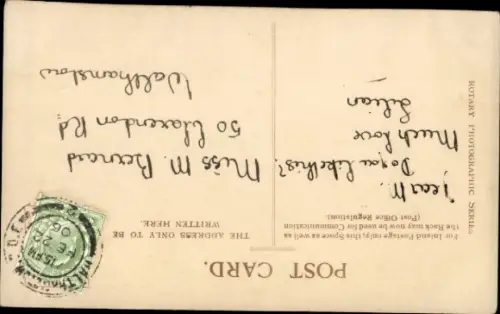 POST CARD.
For Inland Postage only, this Space as well as
the Back may now be used for Communication
(Post Office Regulation)
THE ADDRESS ONLY TO BE
WRITTEN HERE.
Dear M.
Do you like this?
Much love
Lilian
Miss M. Bernard
50 Clarendon Rd
Walthamstow
ROTARY PHOTOGRAPHIC SERIES
WALTHAM
5.15 PM
FE 22
05